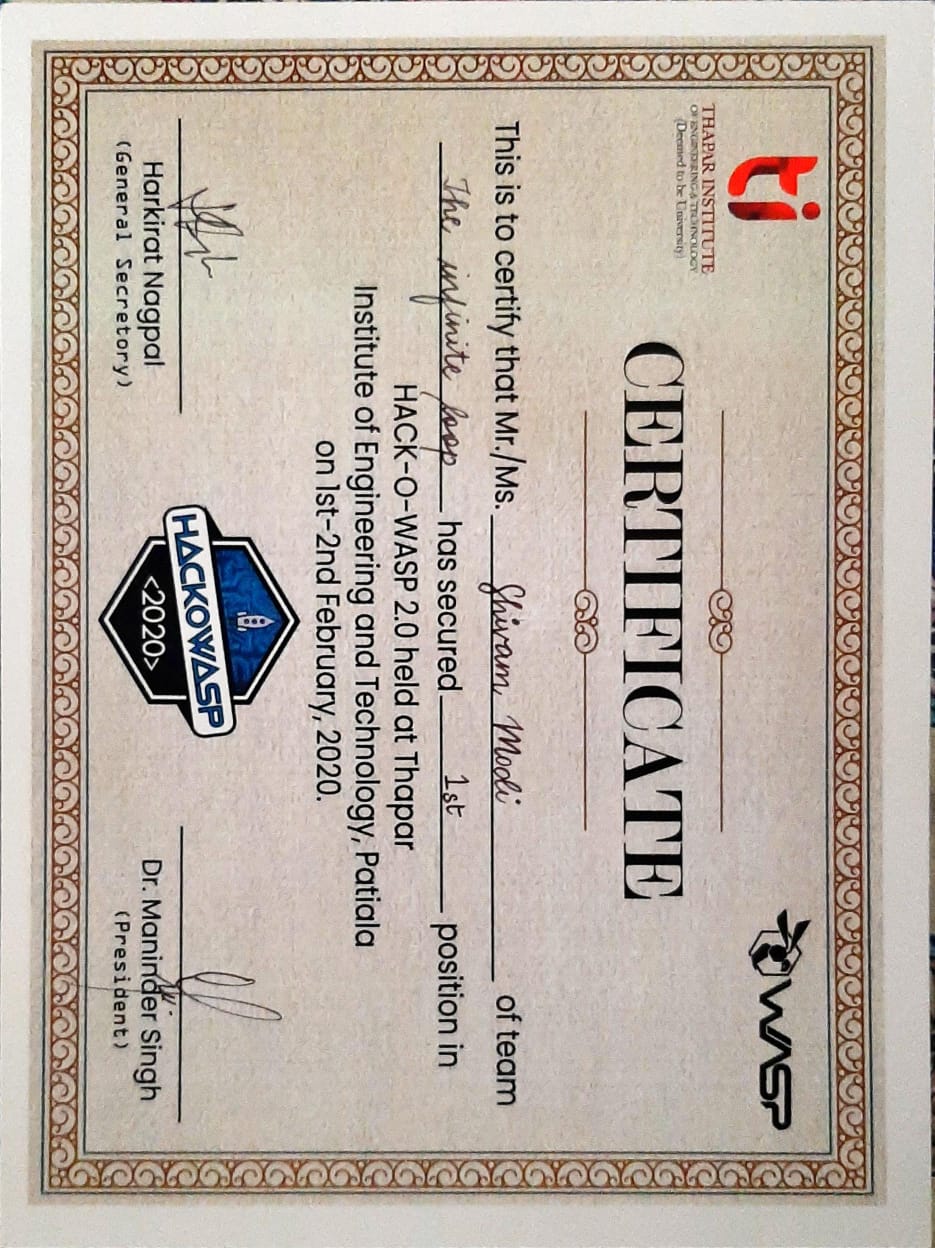 ti
THAPAR INSTITUTE
OF ENGINEERING & TECHNOLOGY
(Deemed to be University)
OWASP
CERTIFICATE
This is to certify that Mr./Ms. Shivam Modi of team
The infinite loop has secured 1st position in
HACK-O-WASP 2.0 held at Thapar
Institute of Engineering and Technology, Patiala
on 1st-2nd February, 2020.
Harkirat Nagpal
(General Secretory)
HACKOWASP
<2020>
Dr. Maninder Singh
(President)